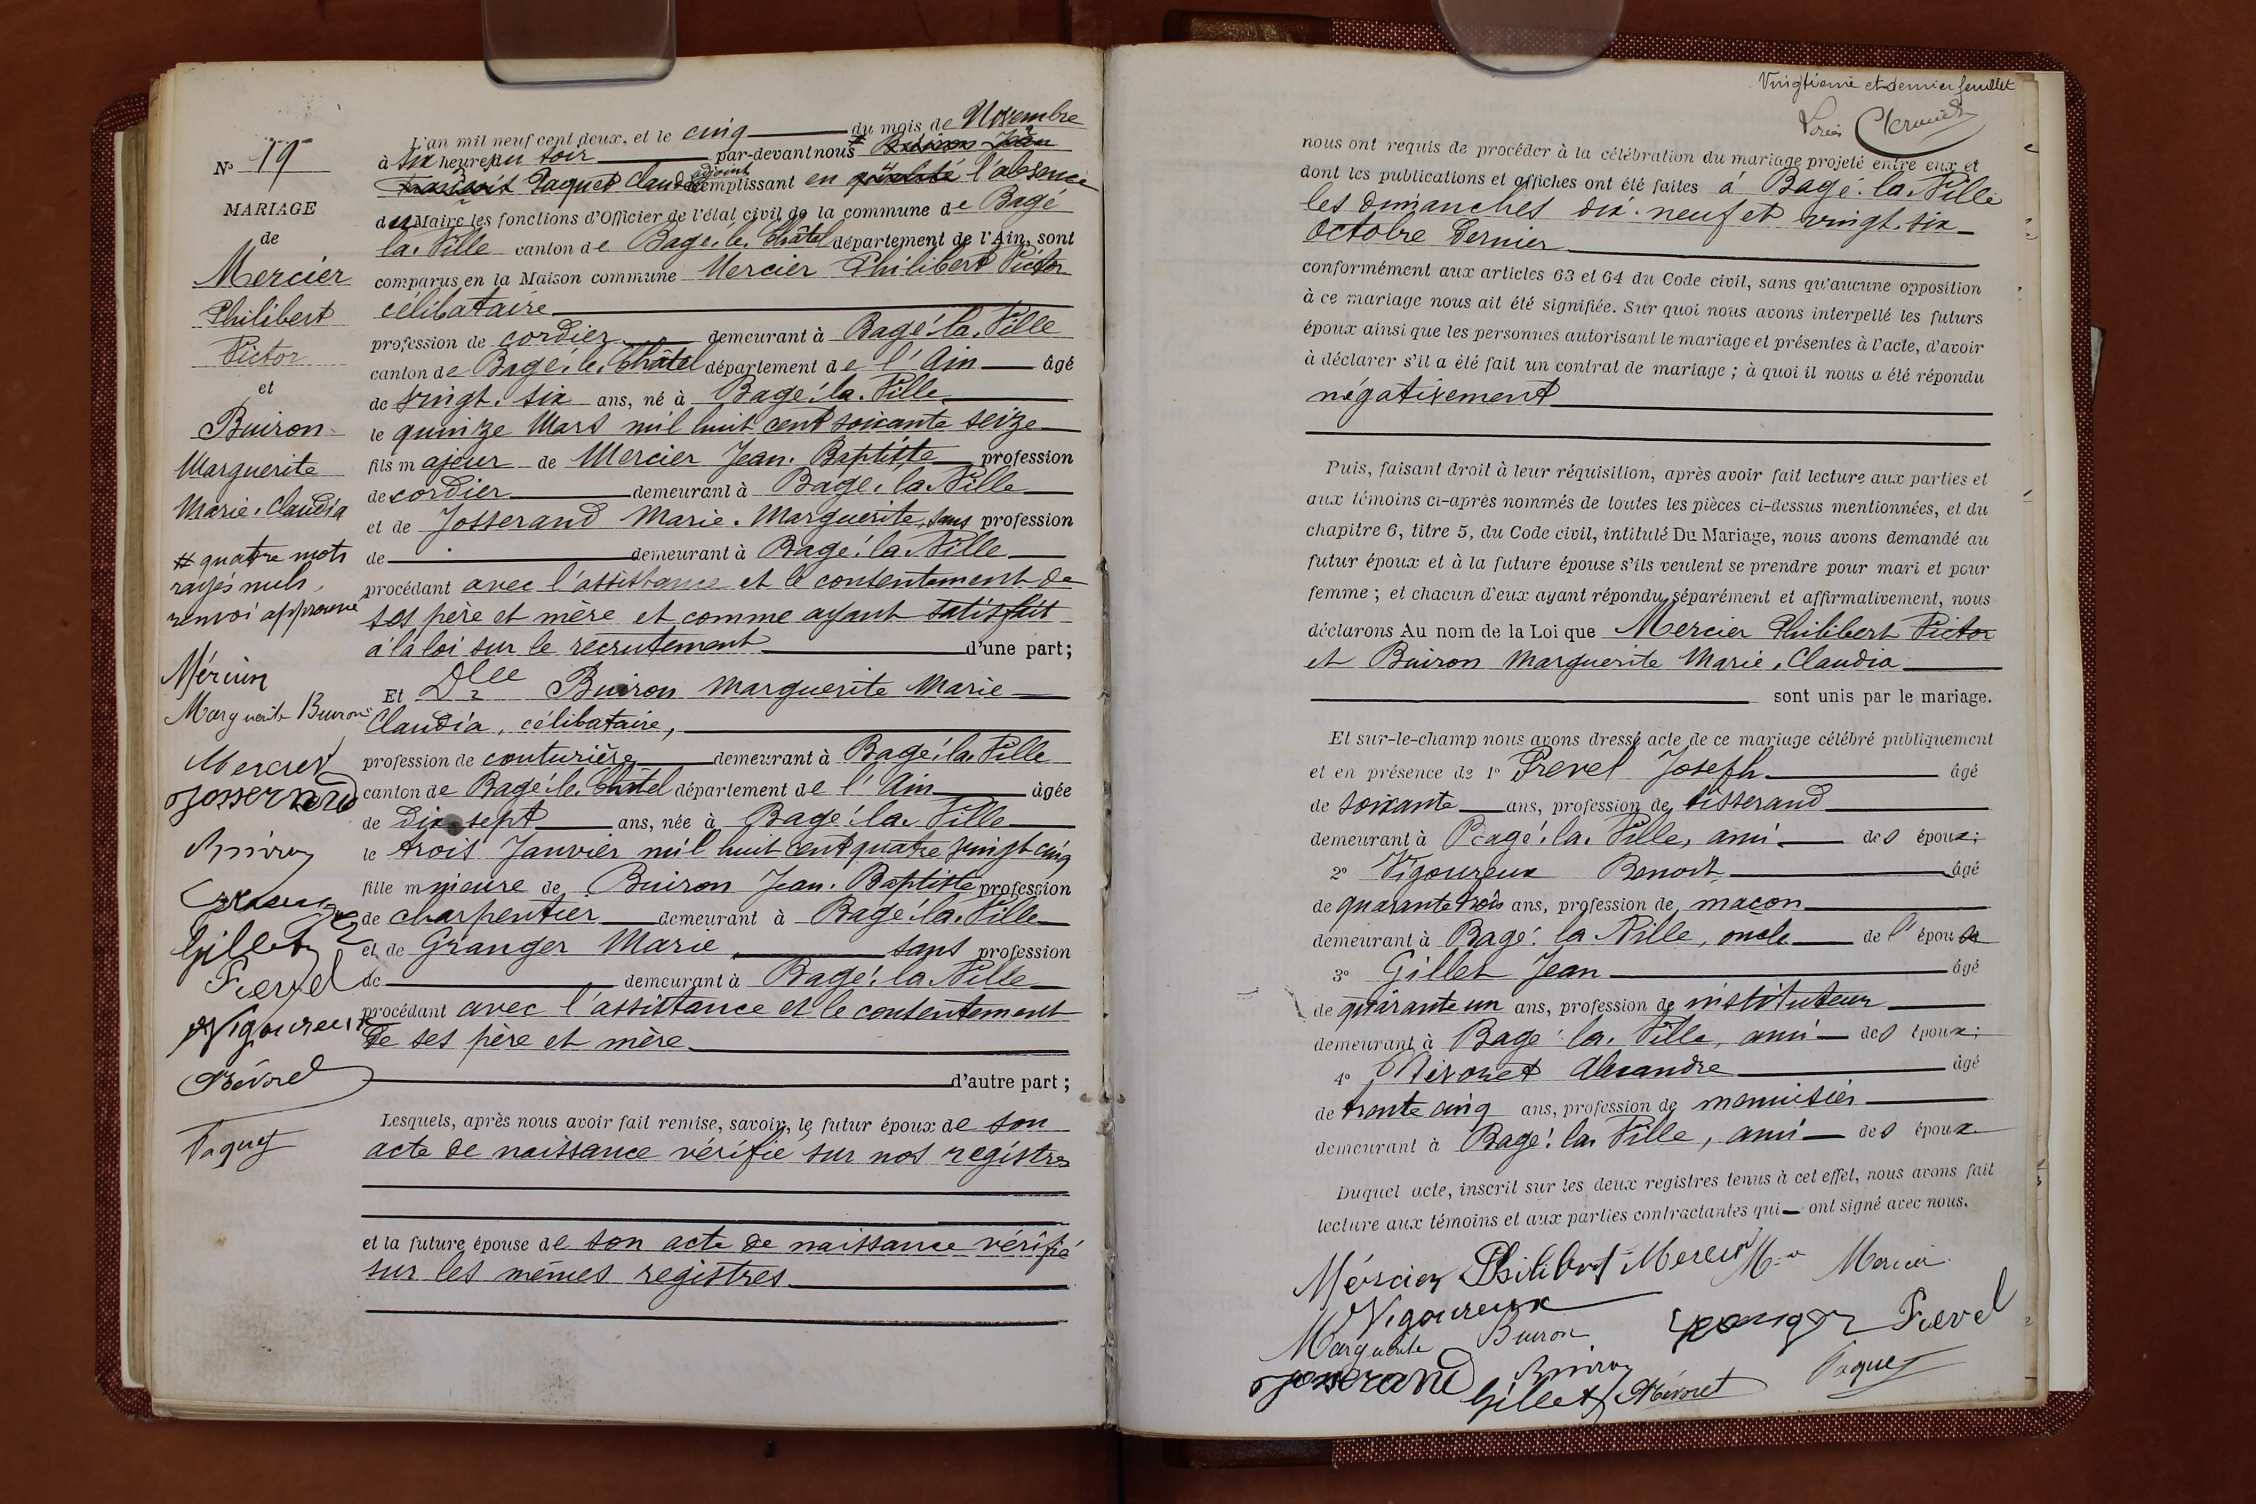 N° 19
MARIAGE
de
Mercier
Philibert
Victor
et
Buiron
Marguerite
Marie-Claudia
# quatre mots
rayés nuls,
renvoi approuvé
Mércier
Marguerite Buiron
Mercier
Josserand
Buiron
Granger
Gillet
Prevel
Vigoureux
Névoret
Paquet
L'an mil neuf cent deux, et le cinq du mois de Novembre
à six heures du soir par-devant nous # Buiron Jean
François Paquet Claude adjoint remplissant en qualité l'absence
du Maire les fonctions d'Officier de l'état civil de la commune de Bagé
la-Ville canton de Bagé-le-Châtel département de l'Ain, sont
comparus en la Maison commune Mercier Philibert Victor
célibataire
profession de cordier demeurant à Bagé-la-Ville
canton de Bagé-le-Châtel département de l'Ain âgé
de vingt-six ans, né à Bagé-la-Ville
le quinze Mars mil huit cent soixante seize
fils majeur de Mercier Jean-Baptiste profession
de cordier demeurant à Bagé-la-Ville
et de Josserand Marie-Marguerite, sans profession
de demeurant à Bagé-la-Ville
procédant avec l'assistance et le consentement de
ses père et mère et comme ayant satisfait
à la loi sur le recrutement d'une part;
Et Dlle Buiron Marguerite Marie
Claudia, célibataire,
profession de couturière demeurant à Bagé-la-Ville
canton de Bagé-le-Châtel département de l'Ain âgée
de dix-sept ans, née à Bagé-la-Ville
le trois Janvier mil huit cent quatre vingt cinq
fille mineure de Buiron Jean-Baptiste profession
de charpentier demeurant à Bagé-la-Ville
et de Granger Marie sans profession
de demeurant à Bagé-la-Ville
procédant avec l'assistance et le consentement
de ses père et mère
d'autre part;
Lesquels, après nous avoir fait remise, savoir, le futur époux de son
acte de naissance vérifié sur nos registres
et la future épouse de son acte de naissance vérifié
sur les mêmes registres
Vingtième et dernier feuillet
nous ont requis de procéder à la célébration du mariage projeté entre eux et
dont les publications et affiches ont été faites à Bagé-la-Ville
les dimanches dix-neuf et vingt-six
Octobre dernier
conformément aux articles 63 et 64 du Code civil, sans qu'aucune opposition
à ce mariage nous ait été signifiée. Sur quoi nous avons interpellé les futurs
époux ainsi que les personnes autorisant le mariage et présentes à l'acte, d'avoir
à déclarer s'il a été fait un contrat de mariage; à quoi il nous a été répondu
négativement
Puis, faisant droit à leur réquisition, après avoir fait lecture aux parties et
aux témoins ci-après nommés de toutes les pièces ci-dessus mentionnées, et du
chapitre 6, titre 5, du Code civil, intitulé Du Mariage, nous avons demandé au
futur époux et à la future épouse s'ils veulent se prendre pour mari et pour
femme; et chacun d'eux ayant répondu séparément et affirmativement, nous
déclarons Au nom de la Loi que Mercier Philibert Victor
et Buiron Marguerite Marie-Claudia
sont unis par le mariage.
Et sur-le-champ nous avons dressé acte de ce mariage célébré publiquement
et en présence de 1° Prevel Joseph âgé
de soixante ans, profession de tisserand
demeurant à Bagé-la-Ville, ami des époux;
2° Vigoureux Benoit âgé
de quarante trois ans, profession de maçon
demeurant à Bagé-la-Ville, oncle de l'épouse
3° Gillet Jean âgé
de quarante un ans, profession de instituteur
demeurant à Bagé-la-Ville, ami des époux;
4° Névoret Alexandre âgé
de trente cinq ans, profession de menuisier
demeurant à Bagé-la-Ville, ami des époux
Duquel acte, inscrit sur les deux registres tenus à cet effet, nous avons fait
lecture aux témoins et aux parties contractantes qui ont signé avec nous.
Mércier Philibert Mercier Mercier
Vigoureux
Marguerite Buiron Granger Prevel
Josserand Buiron Paquet
Gillet Névoret